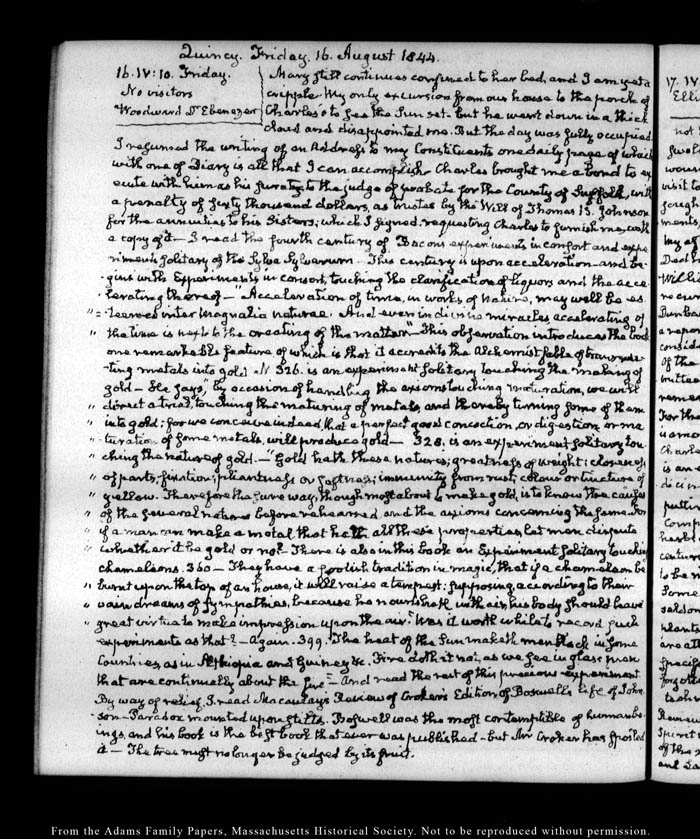 Quincy. Friday, 16. August 1844.
16. IV: 10. Friday.
No visitors
Woodward Dr Ebenezer
Mary still continues confined to her bed, and I am yet a
cripple. My only excursion from our house to the porch of
Charles's to see the Sun set. but he went down in a thick
cloud and disappointed me. But the day was fully occupied
I resumed the writing of an Address to my Constituents one daily page of which
with one of Diary is all that I can accomplish. Charles brought me a bond to ex
ecute with him as his surety to the judge of probate for the County of Suffolk, with
a penalty of sixty thousand dollars, as trustee by the Will of Thomas B. Johnson
for the annuities to his Sisters; which I signed, requesting Charles to furnish me with
a copy of it — I read the fourth century of Bacons experiments in consort and expe
riments solitary of the Sylva Sylvarum. This century is upon acceleration and be-
gins with Experiments in consort, touching the clarification of liquors and the acce-
lerating thereof — Acceleration of time, in works of Nature, may well be es-
"teemed inter magnalia naturae. And even in divine miracles accelerating of
" the time is next to the creating of the matter." This observation introduces the book
one remarkable feature of which is that it accredits the Alchemist fable of transmu-
ting metals into gold. N. 326. is an experiment solitary touching the making of
gold — He says, "by occasion of handling the axioms touching maturation, we will
" direct a trial, touching the maturing of metals, and thereby turning some of them
" into gold; for we conceive indeed, that a perfect good concoction, or digestion or ma
" turation of some metals, will produce gold — 328. is an experiment solitary tou-
ching the nature of gold — "Gold hath these natures; greatness of weight; closeness
" of parts, fixation; pliantness or softness; immunity from rust; colour or tincture of
" yellow. Therefore the sure way, though most about to make gold, is to know the causes
" of the several natures before rehearsed, and the axioms concerning the same. For
" if a man can make a metal that hath all these properties, let men dispute
" whether it be gold or no?" There is also in this book an Experiment solitary touching
chameleons. 360 — They have a foolish tradition in magic, that if a chameleon be
" burnt upon the top of an house, it will raise a tempest; supposing, according to their
" vain dreams of sympathies, because he nourisheth with air, his body should have
" great virtue to make impression upon the air." Was it worth while to record such
experiments as that? — Again. 399. "The heat of the Sun maketh men black in some
Countries, as in Æthiopia and Guiney &c. Fire doth it not, as we see in glass men
that are continually about the fire" — And read the rest of this precious experiment
By way of relief, I read Macaulay's Review of Croker's Edition of Boswell's life of John-
son — Paradox mounted upon stilts. Boswell was the most contemptible of human be-
ings, and his book is the best book that ever was published — but Mr Croker has spoiled
it — The tree must no longer be judged by its fruit.
17. IV
From the Adams Family Papers, Massachusetts Historical Society. Not to be reproduced without permission.